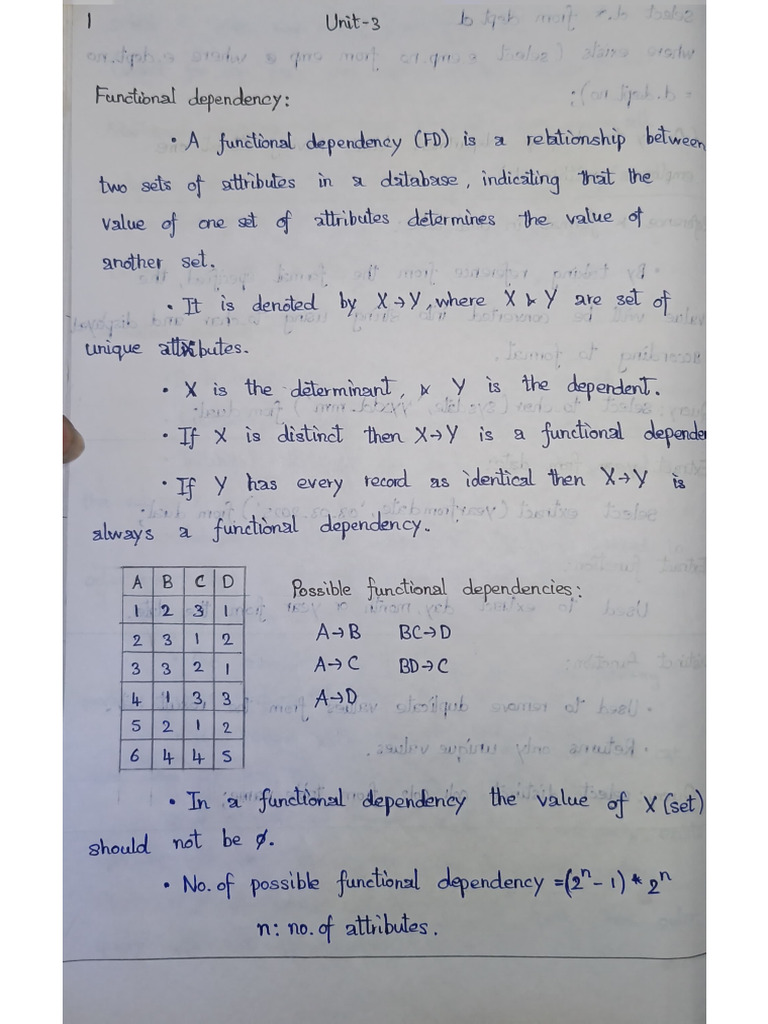 1 Unit-3
Functional dependency:
• A functional dependency (FD) is a relationship between
two sets of attributes in a database, indicating that the
value of one set of attributes determines the value of
another set.
• It is denoted by X→Y, where X & Y are set of
unique attributes.
• X is the determinant, & Y is the dependent.
• If X is distinct then X→Y is a functional depende
• If Y has every record as identical then X→Y is
always a functional dependency.
A B C D
1 2 3 1
2 3 1 2
3 3 2 1
4 1 3 3
5 2 1 2
6 4 4 5
Possible functional dependencies:
A→B BC→D
A→C BD→C
A→D
• In a functional dependency the value of X (set)
should not be ø.
• No. of possible functional dependency = (2ⁿ - 1) * 2ⁿ
n: no. of attributes.